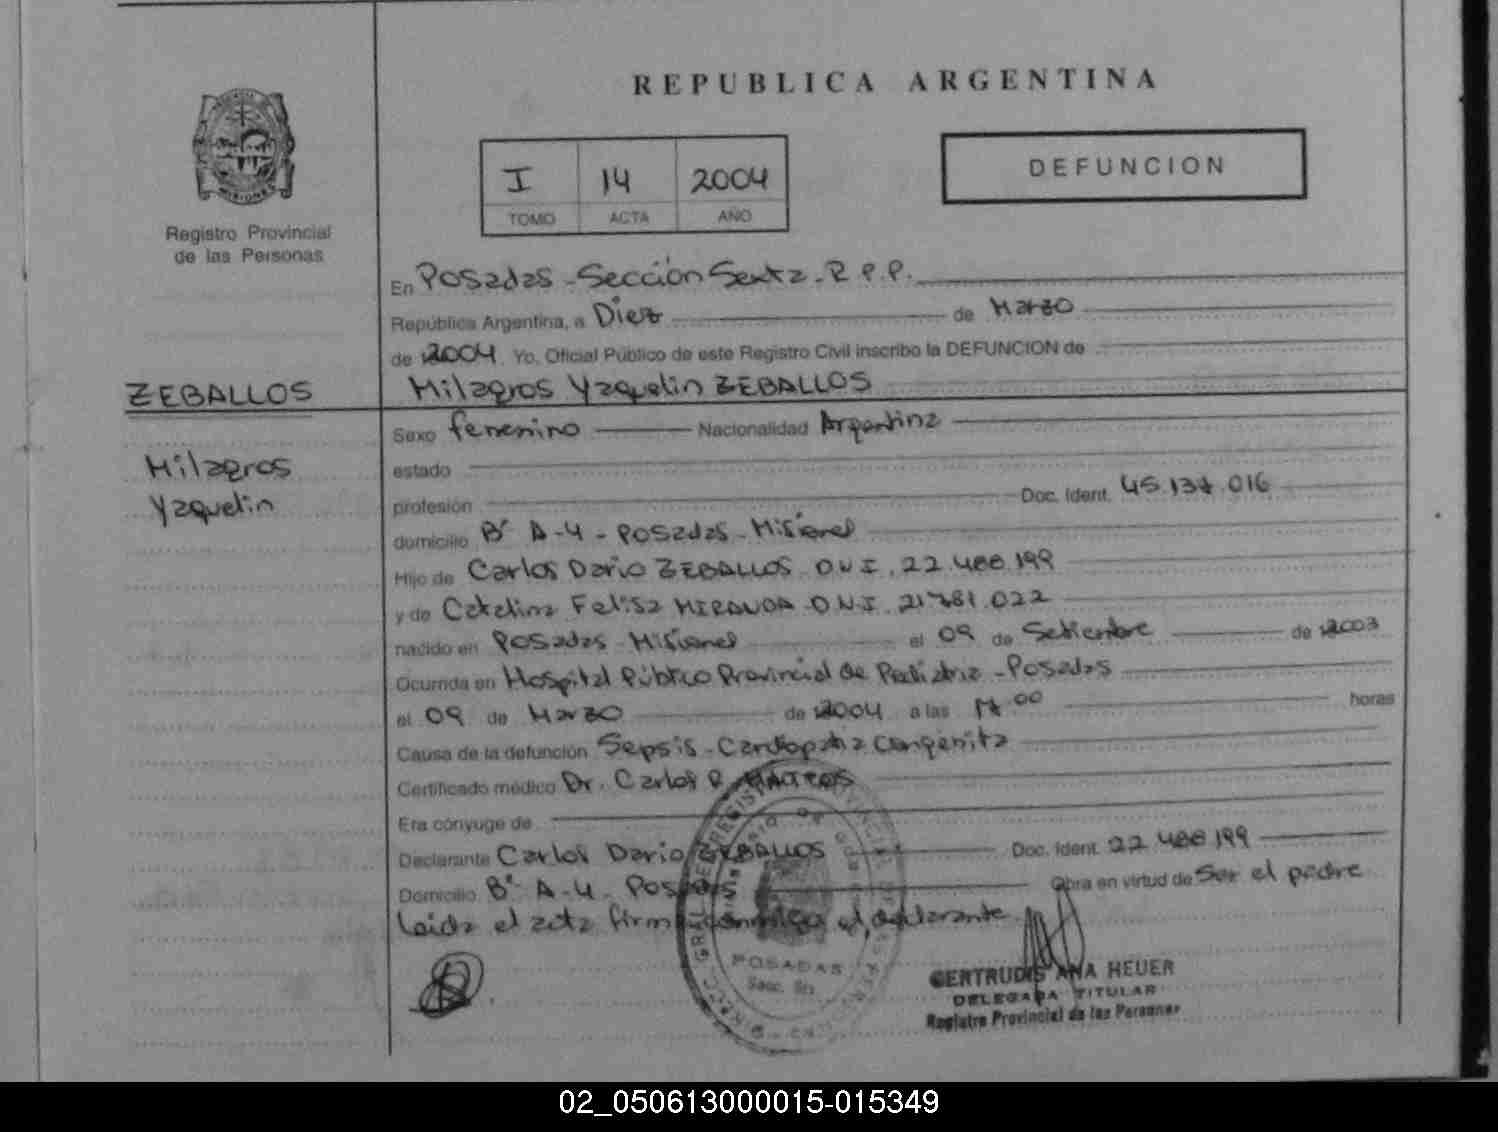 REPUBLICA ARGENTINA
MISIONES
Registro Provincial
de las Personas
I 14 2004
TOMO ACTA AÑO
DEFUNCION
En Posadas - Sección Sexta - R.P.P.
República Argentina, a Diez de Marzo
de 2004 Yo, Oficial Público de este Registro Civil inscribo la DEFUNCION de
Milagros Yaquelin ZEBALLOS
ZEBALLOS
Milagros
Yaquelin
Sexo femenino Nacionalidad Argentina
estado
profesión Doc. Ident. 45.137.016
domicilio Bº A-4 - Posadas - Misiones
Hijo de Carlos Dario ZEBALLOS D.N.I. 22.488.199
y de Catalina Felisa MIRANDA D.N.I. 21.781.022
nacido en Posadas - Misiones el 09 de Setiembre de 2003
Ocurrida en Hospital Público Provincial de Pediatria - Posadas
el 09 de Marzo de 2004 a las 17.00 horas
Causa de la defunción Sepsis - Cardiopatia Congenita
Certificado médico Dr. Carlos R.
Era cónyuge de
Declarante Carlos Dario ZEBALLOS Doc. Ident. 22.488.199
Domicilio Bº A-4 - Posadas Obra en virtud de Ser el padre
Leida el acta firma conmigo el declarante
POSADAS
Secc. 6ta
GERTRUDIS ANA HEUER
DELEGADA TITULAR
Registro Provincial de las Personas
02_050613000015-015349